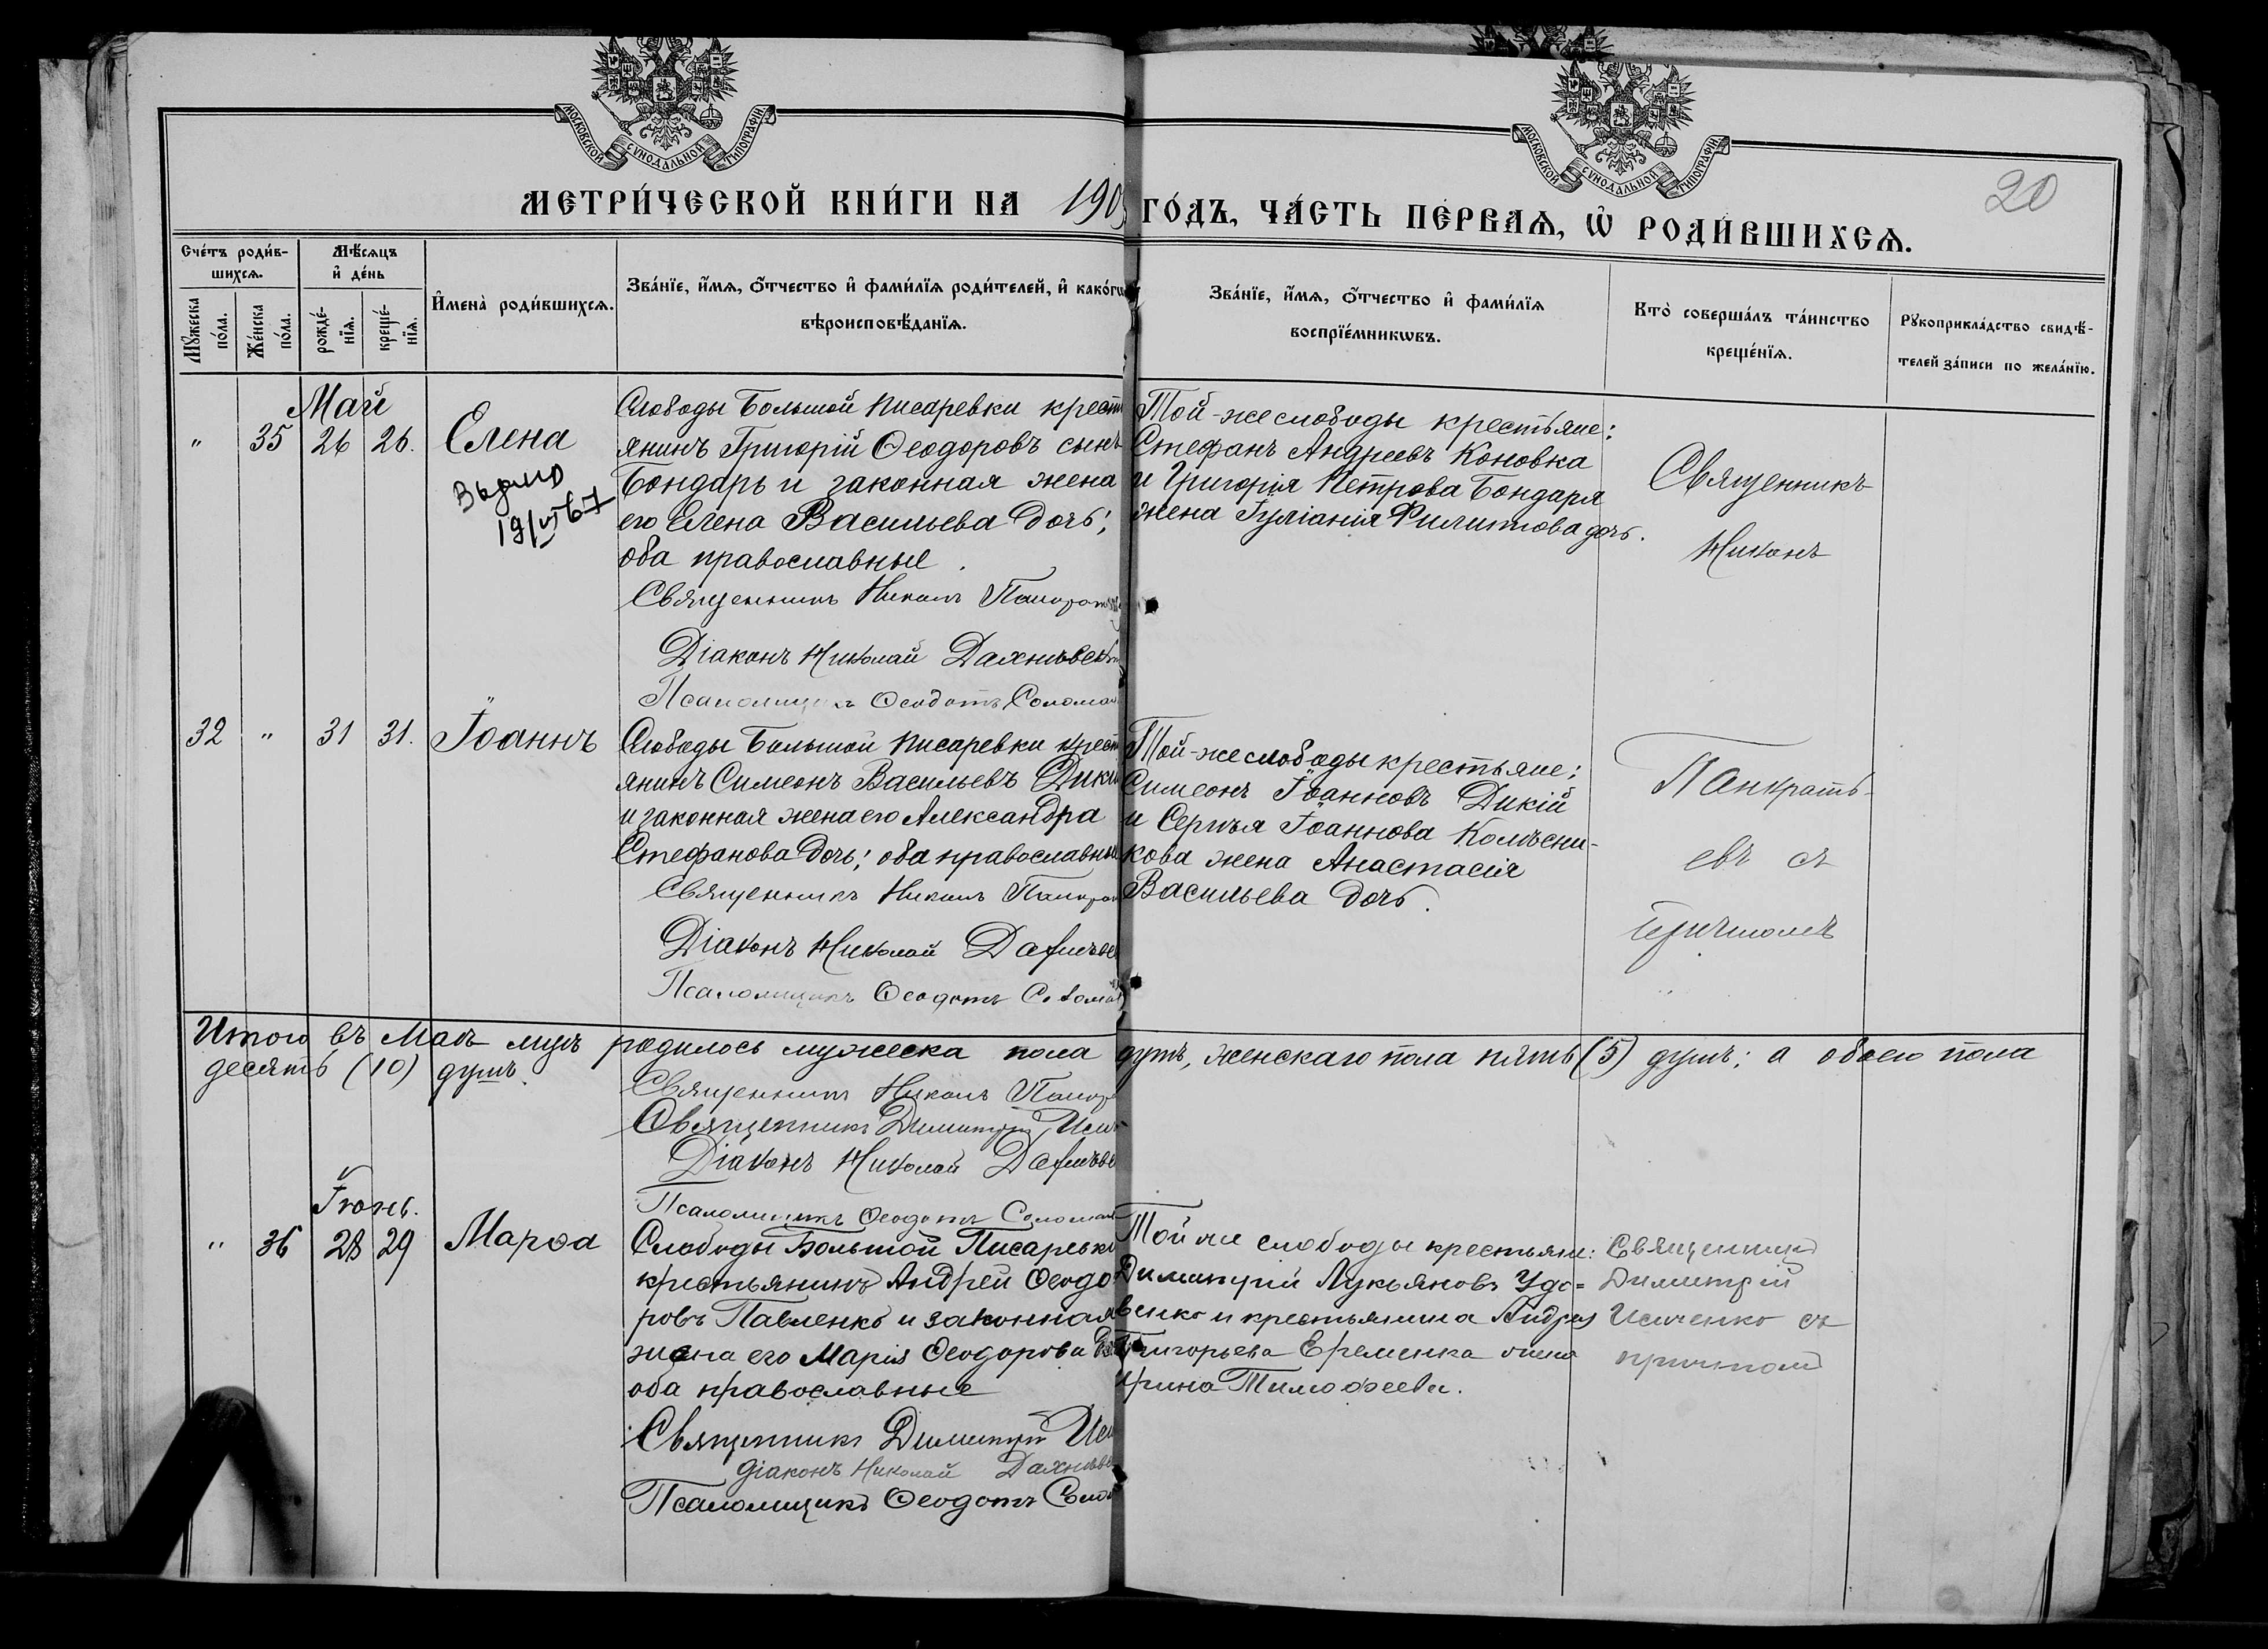 МОСКОВСКОЙ СУНОДАЛЬНОЙ ТИПОГРАФІИ.
МОСКОВСКОЙ СУНОДАЛЬНОЙ ТИПОГРАФІИ.
20
МЕТРИ́ЧЕСКОЙ КНИ́ГИ НА 190
ГО́ДЪ, ЧА́СТЬ ПЕ́РВАѦ, Ѡ҆ РОДИ́ВШИХСѦ.
Сче́тъ роди́в-
шихсѧ.
Мꙋ́жеска
по́ла.
Же́нска
по́ла.
Мѣ́сѧцъ
и҆ де́нь
рожде́-
нїѧ.
креще́-
нїѧ.
И҆мена̀ роди́вшихсѧ.
Зва́нїе, и҆́мѧ, ѻ҆́тчество и҆ фами́лїѧ роди́телей, и҆ како́гѡ
вѣроисповѣ́данїѧ.
Зва́нїе, и҆́мѧ, ѻ҆́тчество и҆ фами́лїѧ
воспрїе́мникѡвъ.
Кто̀ соверша́лъ та́инство
креще́нїѧ.
Рꙋкоприкла́дство свидѣ́-
телей за́писи по жела́нїю.
Май
" 35 26 26. Елена
Слободы Большой Писаревки крест
янинъ Григорій Ѳеодоровъ сынъ
Бондарь и законная жена
его Елена Васильева дочь;
оба православные.
Священникъ Никонъ
Діаконъ Николай
Псаломщикъ Ѳеодотъ
Той-же слободы крестьяне:
Стефанъ Андреевъ Коновка
и Григорія Петрова Бондаря
жена Іуліанія Филиппова дочь.
Священникъ
Никонъ
32 " 31 31. Іоаннъ
Слободы Большой Писаревки крест
янинъ Симеонъ Васильевъ Дики
и законная жена его Александра
Стефанова дочь; оба православные
Священникъ Никонъ
Діаконъ Николай
Псаломщикъ Ѳеодотъ
Той-же слободы крестьяне:
Симеонъ Іоанновъ Дикій
и Сергѣя Іоаннова Колѣсни-
кова жена Анастасія
Васильева дочь.
Панкратъ-
евъ съ
причтомъ
Итого въ Маѣ м-цѣ родилось мужеска пола душъ, женскаго пола пять (5) душъ; а обоего пола
десять (10) душъ.
Священникъ Никонъ
Священникъ Димитрій
Діаконъ Николай
Псаломщикъ Ѳеодотъ
Іюнь.
" 36 28 29 Марѳа
Слободы Большой Писаревки
крестьянинъ Андрей Ѳеодо
ровъ Павленко и законная
жена его Марія Ѳеодорова
оба православные
Священникъ Димитрій
діаконъ Николай
Псаломщикъ Ѳеодотъ
Той же слободы крестьяне:
Димитрій Лукьяновъ Удо=
венко и крестьянина Андрея
Григорьева Еременка жена
Ирина Тимоѳеева.
Священникъ
Димитрій
съ
причтомъ